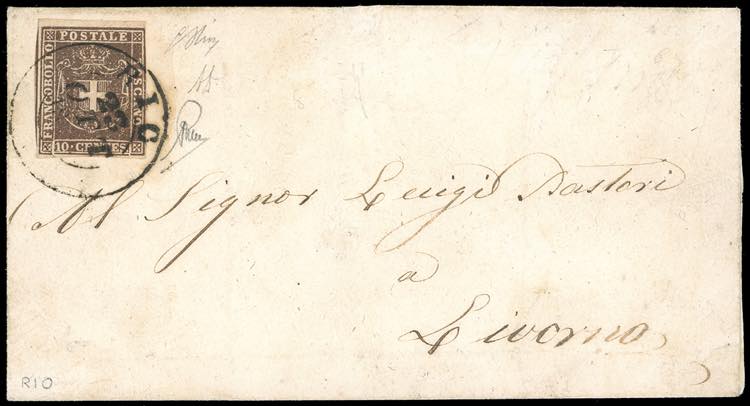 FRANCOBOLLO
POSTALE
TOSCANO
10 CENTES
RIO
23
Al Signor Luigi Pastori
a
Livorno
RIO